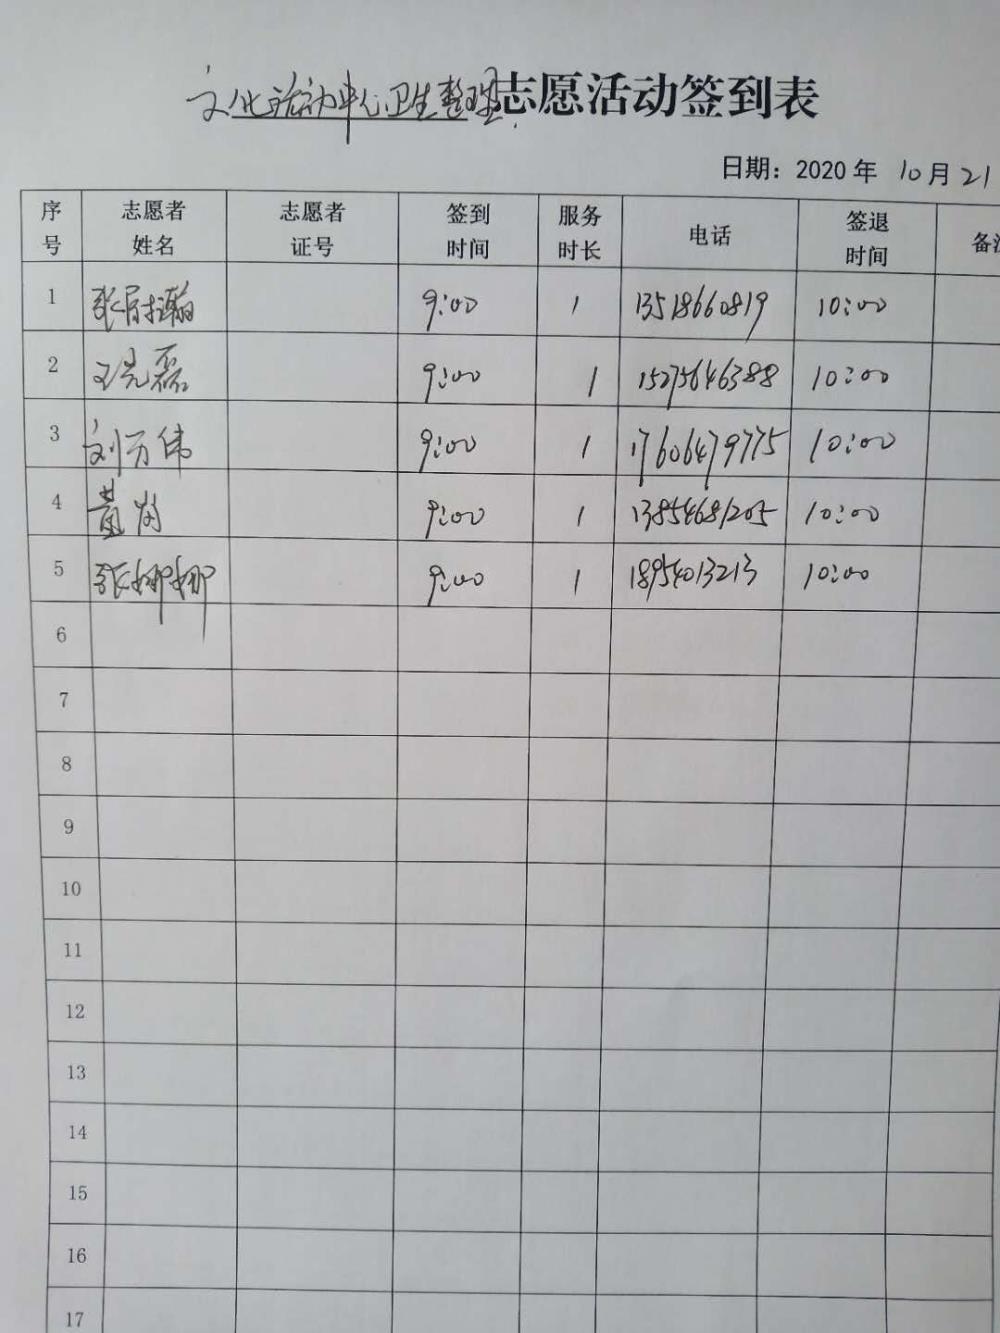 文化活动中心卫生整理志愿活动签到表
日期：2020年 10月21
序号 志愿者姓名 志愿者证号 签到时间 服务时长 电话 签退时间 备
1 9:00 1 13518660819 10:00
2 王克磊 9:00 1 15275646388 10:00
3 刘万伟 9:00 1 17606479775 10:00
4 黄 9:00 1 13854681205 10:00
5 张娜娜 9:00 1 18954013213 10:00
6
7
8
9
10
11
12
13
14
15
16
17